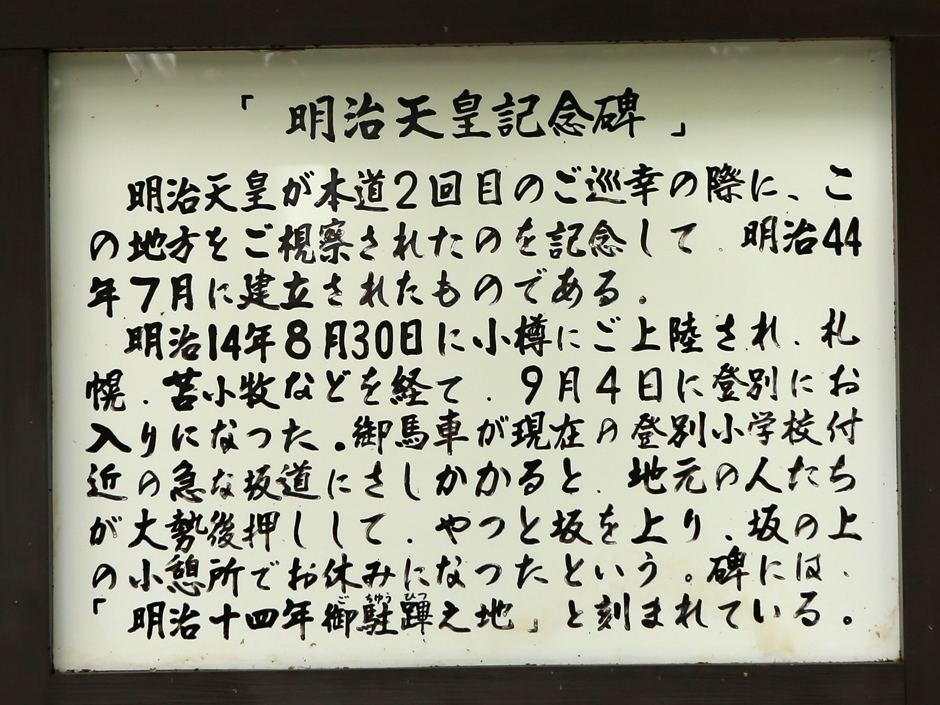 「明治天皇記念碑」
明治天皇が本道2回目のご巡幸の際に、こ
の地方をご視察されたのを記念して、明治44
年7月に建立されたものである。
明治14年8月30日に小樽にご上陸され、札
幌、苫小牧などを経て、9月4日に登別にお
入りになった。御馬車が現在の登別小学校付
近の急な坂道にさしかかると、地元の人たち
が大勢後押しして、やっと坂を上り、坂の上
の小憩所でお休みになったという。碑には、
「明治十四年御駐蹕之地」と刻まれている。